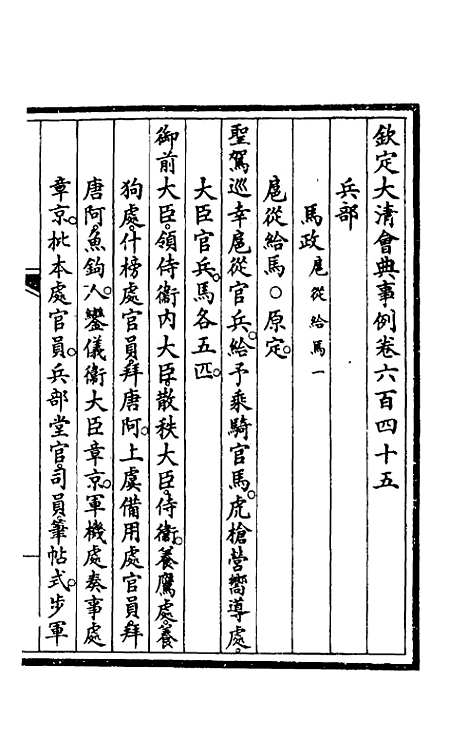 欽定大清會典事例卷六百四十五
兵部
馬政扈從給馬一
扈從給馬○原定。
聖駕巡幸扈從官兵。給予乘騎官馬。虎槍營嚮導處。
大臣官兵。馬各五匹。
御前大臣。領侍衞內大臣。散秩大臣。侍衞。養鷹處。養
狗處。什榜處官員。拜唐阿。上虞備用處官員。拜
唐阿。魚鉤人。鑾儀衞大臣章京。軍機處奏事處
章京。批本處官員。兵部堂官。司員筆帖式。步軍